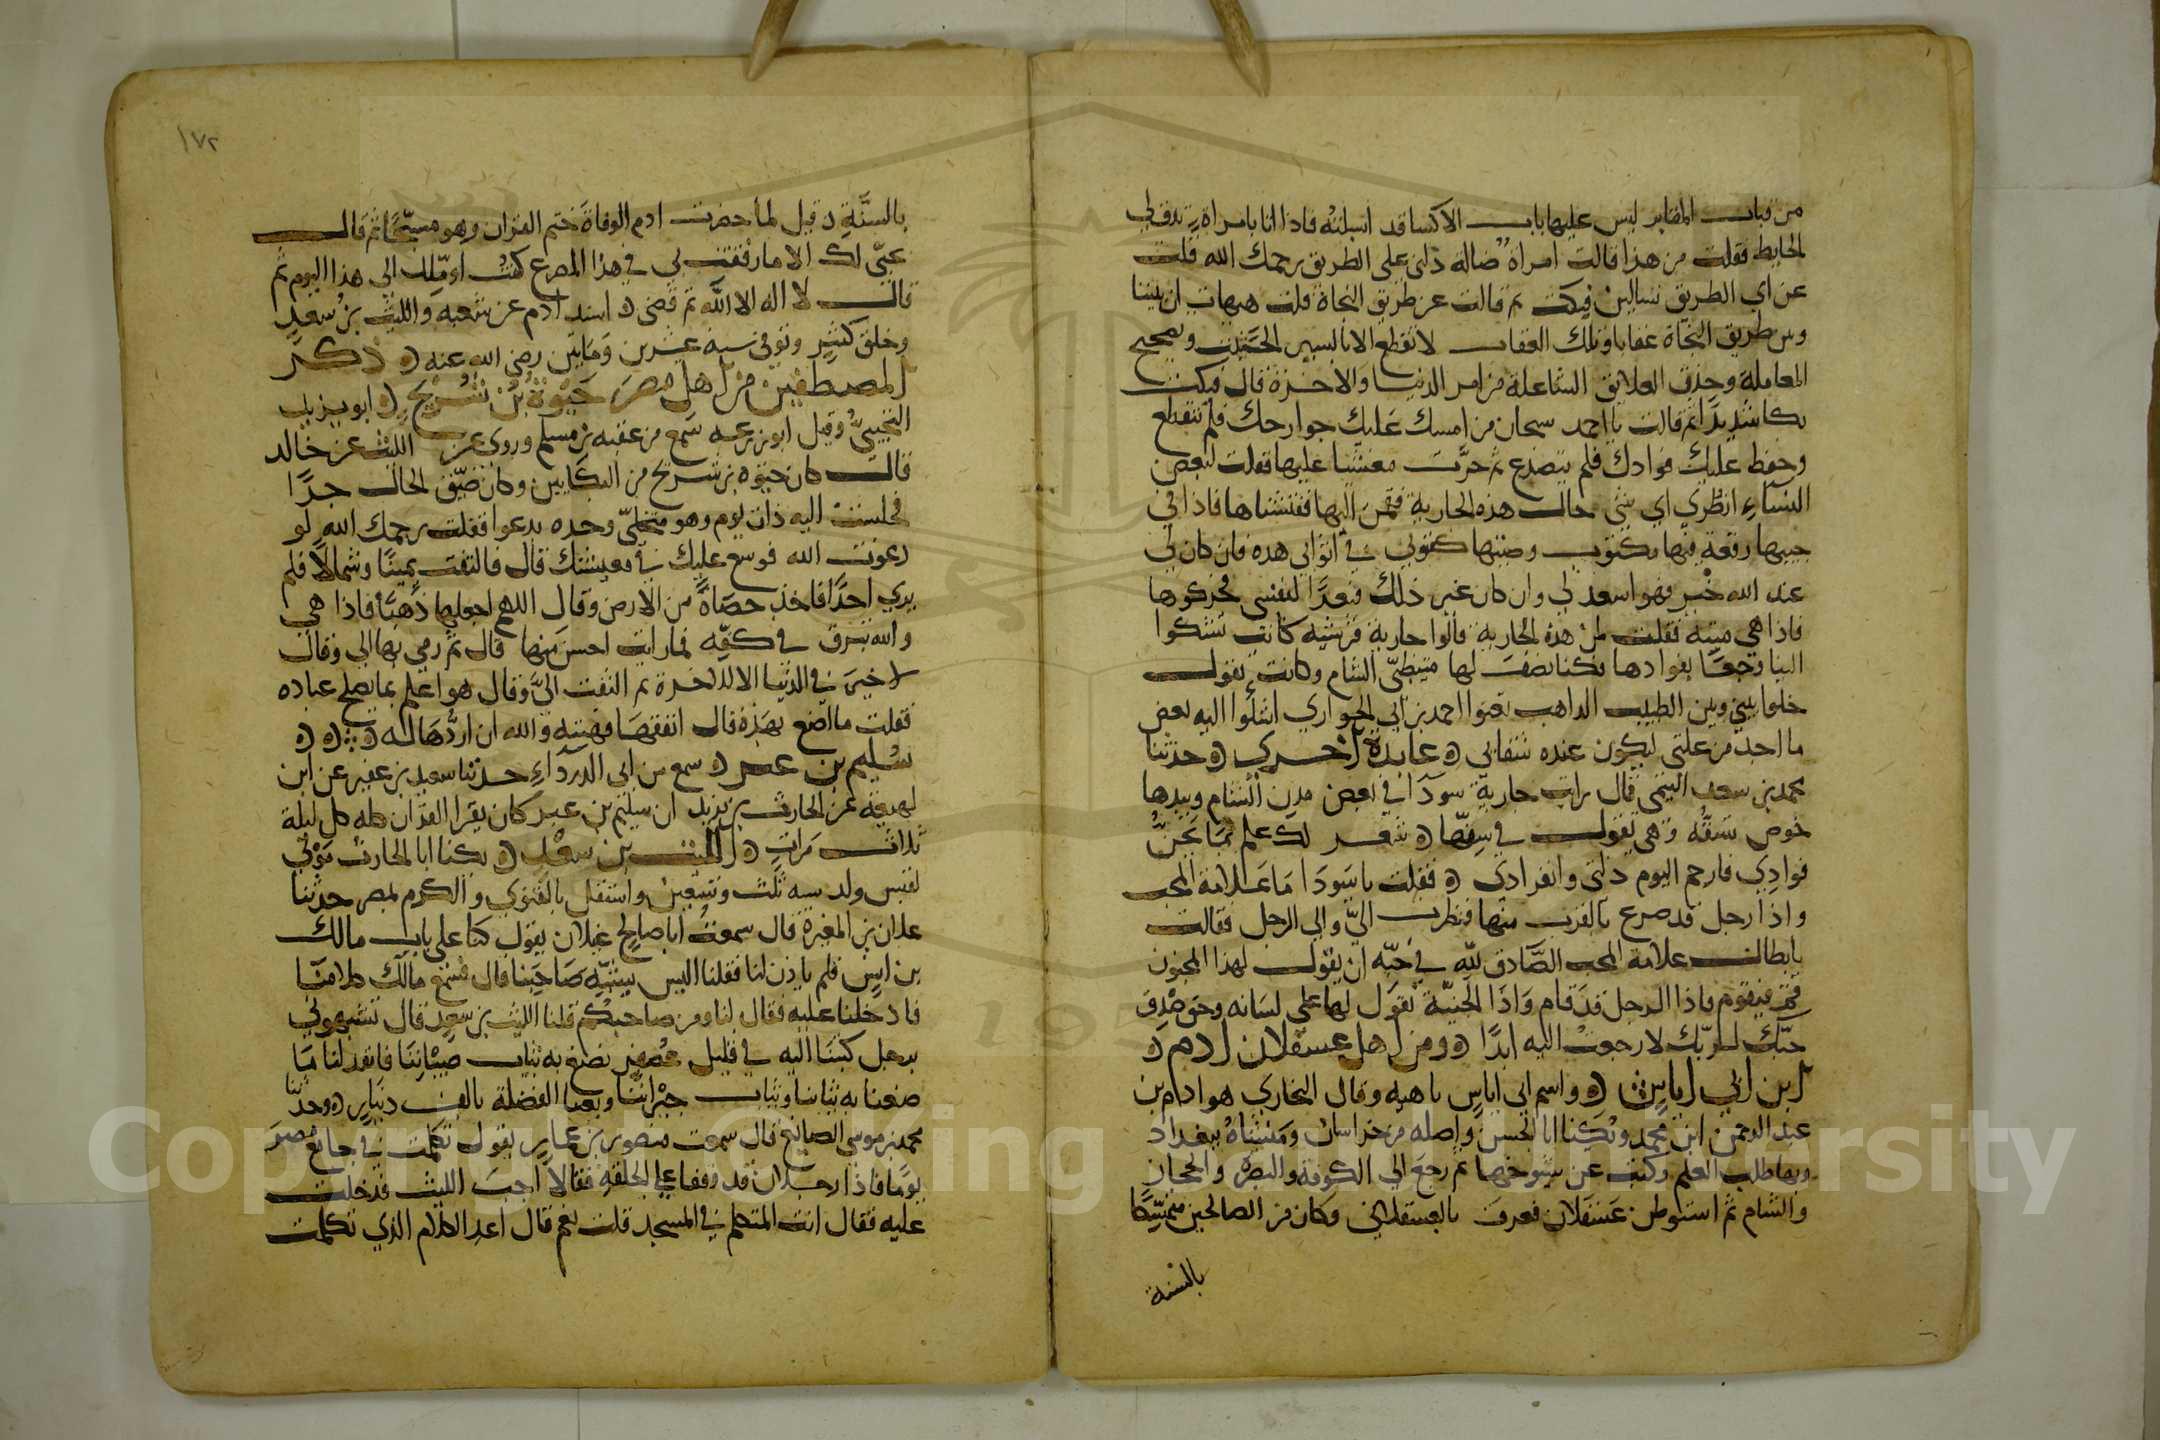 من قباب المقابر ليس عليها باب الا كسا قد اسبلته فاذا انا بامراة تدق لي
الحايط فقلت من هذا قالت امراة ضالة دلني على الطريق رحمك الله قلت
عن اي الطريق تسالين فبكت ثم قالت عن طريق النجاة قلت هيهات ان بيننا
وبين طريق النجاة عقابا وتلك العقاب لا تقطع الا بالسير الحثيث وتصحيح
المعاملة وحذف العلايق الشاغلة من امر الدنيا والاخرة قال فبكت
بكا شديدا ثم قالت يا احمد سبحان من امسك عليك جوارحك فلم تتقطع
وحفظ عليك فوادك فلم يتصدع ثم خرت مغشيا عليها فقلت لبعض
النساء انظري اي شي حال هذه الجارية فقمن اليها ففتشناها فاذا في
جيبها رقعة فيها مكتوب وصيتها كفنوني في اثوابي هده فان كان لي
عند الله خير فهو اسعد لي وان كان غير ذلك فبعدا لنفسي فحركوها
فاذا هي ميته فقلت لمن هذه الجارية قالوا جارية قرشية كانت تشكوا
الينا وجعا بفوادها فكنا نصف لها متطببي الشام وكانت تقول
خلوا بيني وبين الطبيب الراهب تعنوا احمد بن ابي الحواري اشكوا اليه بعض
ما اجد من علتي ليكون عنده شفايي عابدة اخرى حدثنا
محمد بن سعد التيمي قال رايت جارية سودا في بعض مدن الشام وبيدها
خوص تسفه وهي تقول في سفها شعر لك علم بما يجن
فوادي فارحم اليوم ذلتي وانفرادي فقلت يا سودا ما علامة المحب
واذا رجل قد صرع بالقرب منها فنظرت الي والى الرجل فقالت
يا بطال علامة المحب الصادق لله في حبه ان يقول لهذا المجنون
قم فيقوم فاذا الرجل قد قام واذا الجنية تقول لها على لسانه وحق صدق
حبك لربك لا رجعت اليه ابدا ومن اهل عسقلان ادم
ابن ابي اياس واسم ابي اياس ناهيه وقال البخاري هو ادام بن
عبد الرحمن ابن محمد ويكنا ابا الحسن واصله من خراسان ومنشاه ببغداد
وبها طلب العلم وكتب عن شيوخها ثم رجع الى الكوفة والبصره والحجاز
والشام ثم استوطن عسقلان فعرف بالعسقلاني وكان من الصالحين متمسكا
بالسنة
١٧٢
بالسنة قيل لما حضرت ادم الوفاة ختم القران وهو مسجا ثم قال
بحبي لك الا ما رفقت بي في هذا المصرع كنت اوملك الي هذا اليوم ثم
قال لا اله الا الله ثم قضى اسند ادم عن شعبه والليث بن سعد
وخلق كثير وتوفي سنه عشرين ومايتين رضي الله عنه ذكر
المصطفين من اهل مصر حيوة بن شريح ابو يزيد
التجيبي وقيل ابو زرعه سمع من عقبه بن مسلم وروى عن الليث عن خالد
قال كان حيوه بن شريح من البكايين وكان ضيق الحال جدا
فجلست اليه ذات يوم وهو متخلي وحده يدعوا فقلت يرحمك الله لو
دعوت الله فوسع عليك في معيشتك قال فالتفت يمينا وشمالا فلم
يري احدا فاخذ حصاة من الارض وقال اللهم اجعلها ذهبا فاذا هي
والله تبرق في كفه فما رايت احسن منها قال ثم رمي بها الي وقال
لا خير في الدنيا الا للاخرة ثم التفت الي وقال هو اعلم بما يصلح عباده
فقلت ما اصنع بهذه قال انفقها فهبته والله ان اردها اليه
سليم بن عمر سمع من ابي الدرداء حدثنا سعيد بن عفير عن ابن
لهيعة عن الحارث بن يزيد ان سليم بن عمر كان يقرا القران كله كل ليلة
ثلاث مرات الليث بن سعد يكنا ابا الحارث مولي
لقيس ولد سنه ثلث وتسعين واستقل بالفتوي والكرم بمصر حدثنا
علان بن المغيرة قال سمعت ابا صالح غيلان يقول كنا على باب مالك
بن انس فلم ياذن لنا فقلنا اليس يشبه صاحبنا قال فسمع مالك كلامنا
فادخلنا عليه فقال لنا ومن صاحبكم قلنا الليث بن سعد قال تشبهوني
برجل كتبنا اليه في قليل عصفر نصبغ به ثياب صبياننا فانفذ لنا ما
صبغنا به ثيابنا وثياب جيراننا وبعنا الفضلة بالف دينار وحدثنا
محمد بن موسى الصايغ قال سمعت منصور بن عمار يقول تكلمت في جامع مصر
يوما فاذا رجلان قد وقفا على الحلقه فقالا اجب الليث فدخلت
عليه فقال انت المتكلم في المسجد قلت نعم قال اعد الكلام الذي تكلمت
Copyright © King Saud University